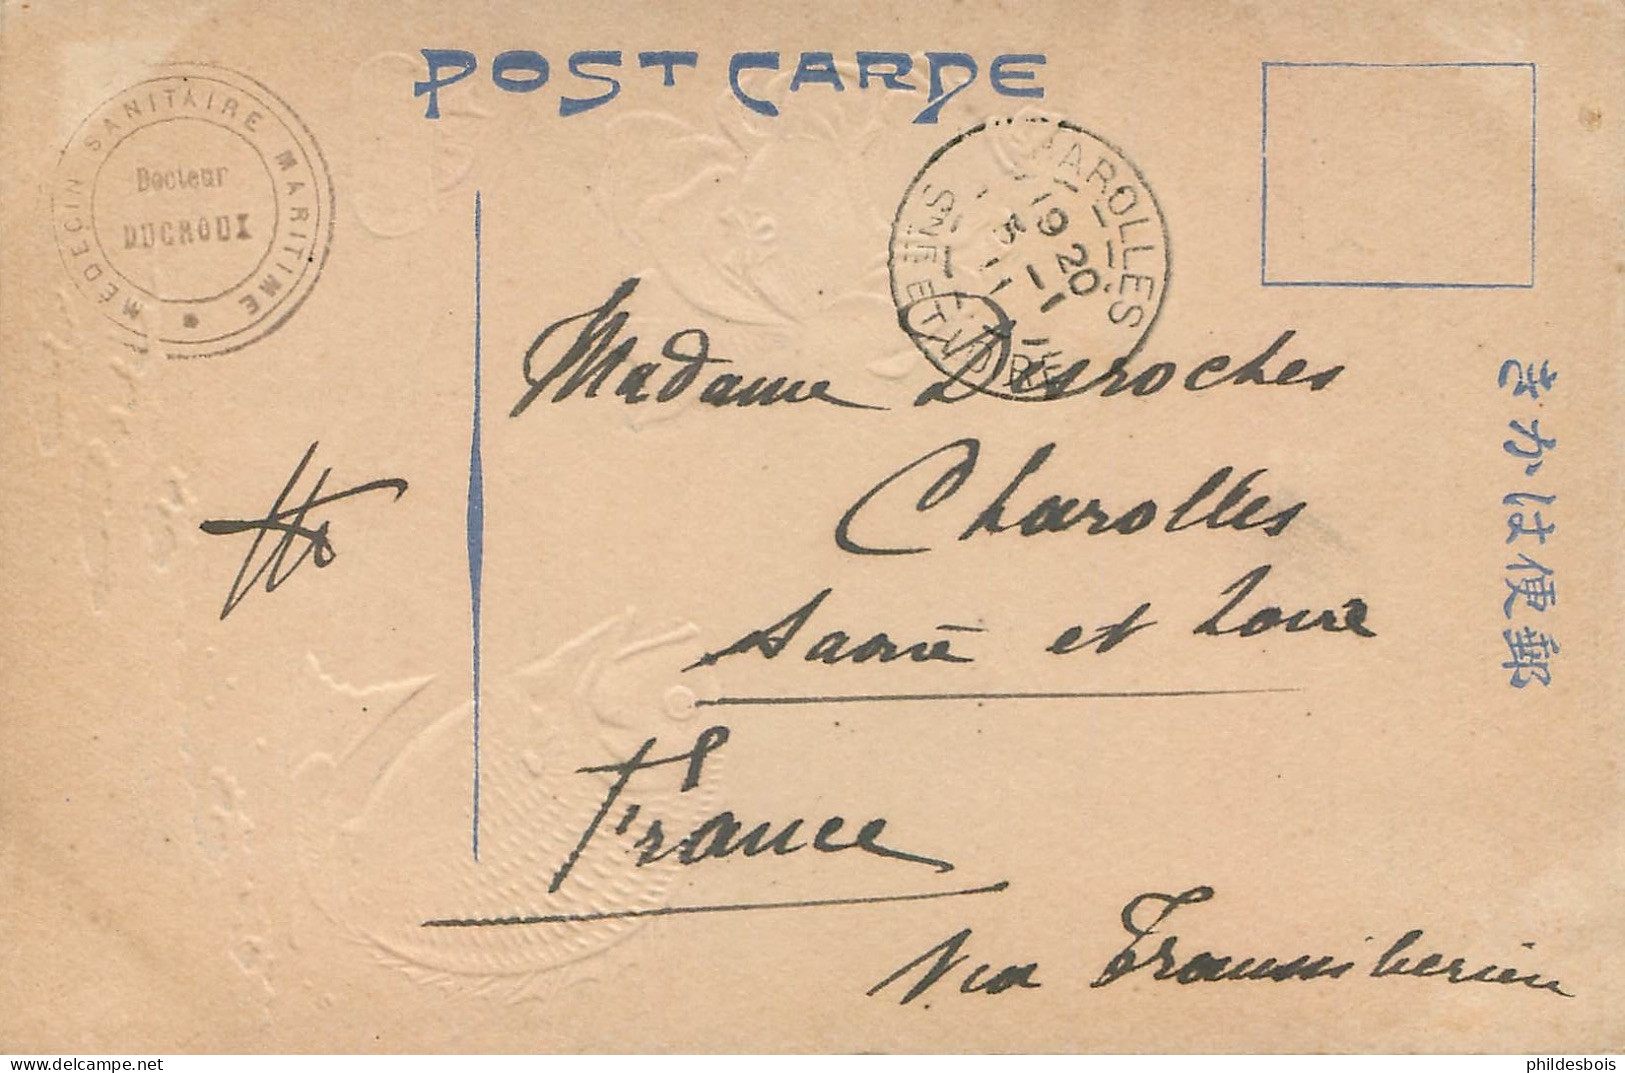 POST CARDE
MÉDECIN SANITAIRE MARITIME *
Docteur
DUCROUX
CHAROLLES
19 20
SNE ET LOIRE
Madame Desroches
Charolles
Saône et Loire
France
Via Transsiberien
きかは便郵